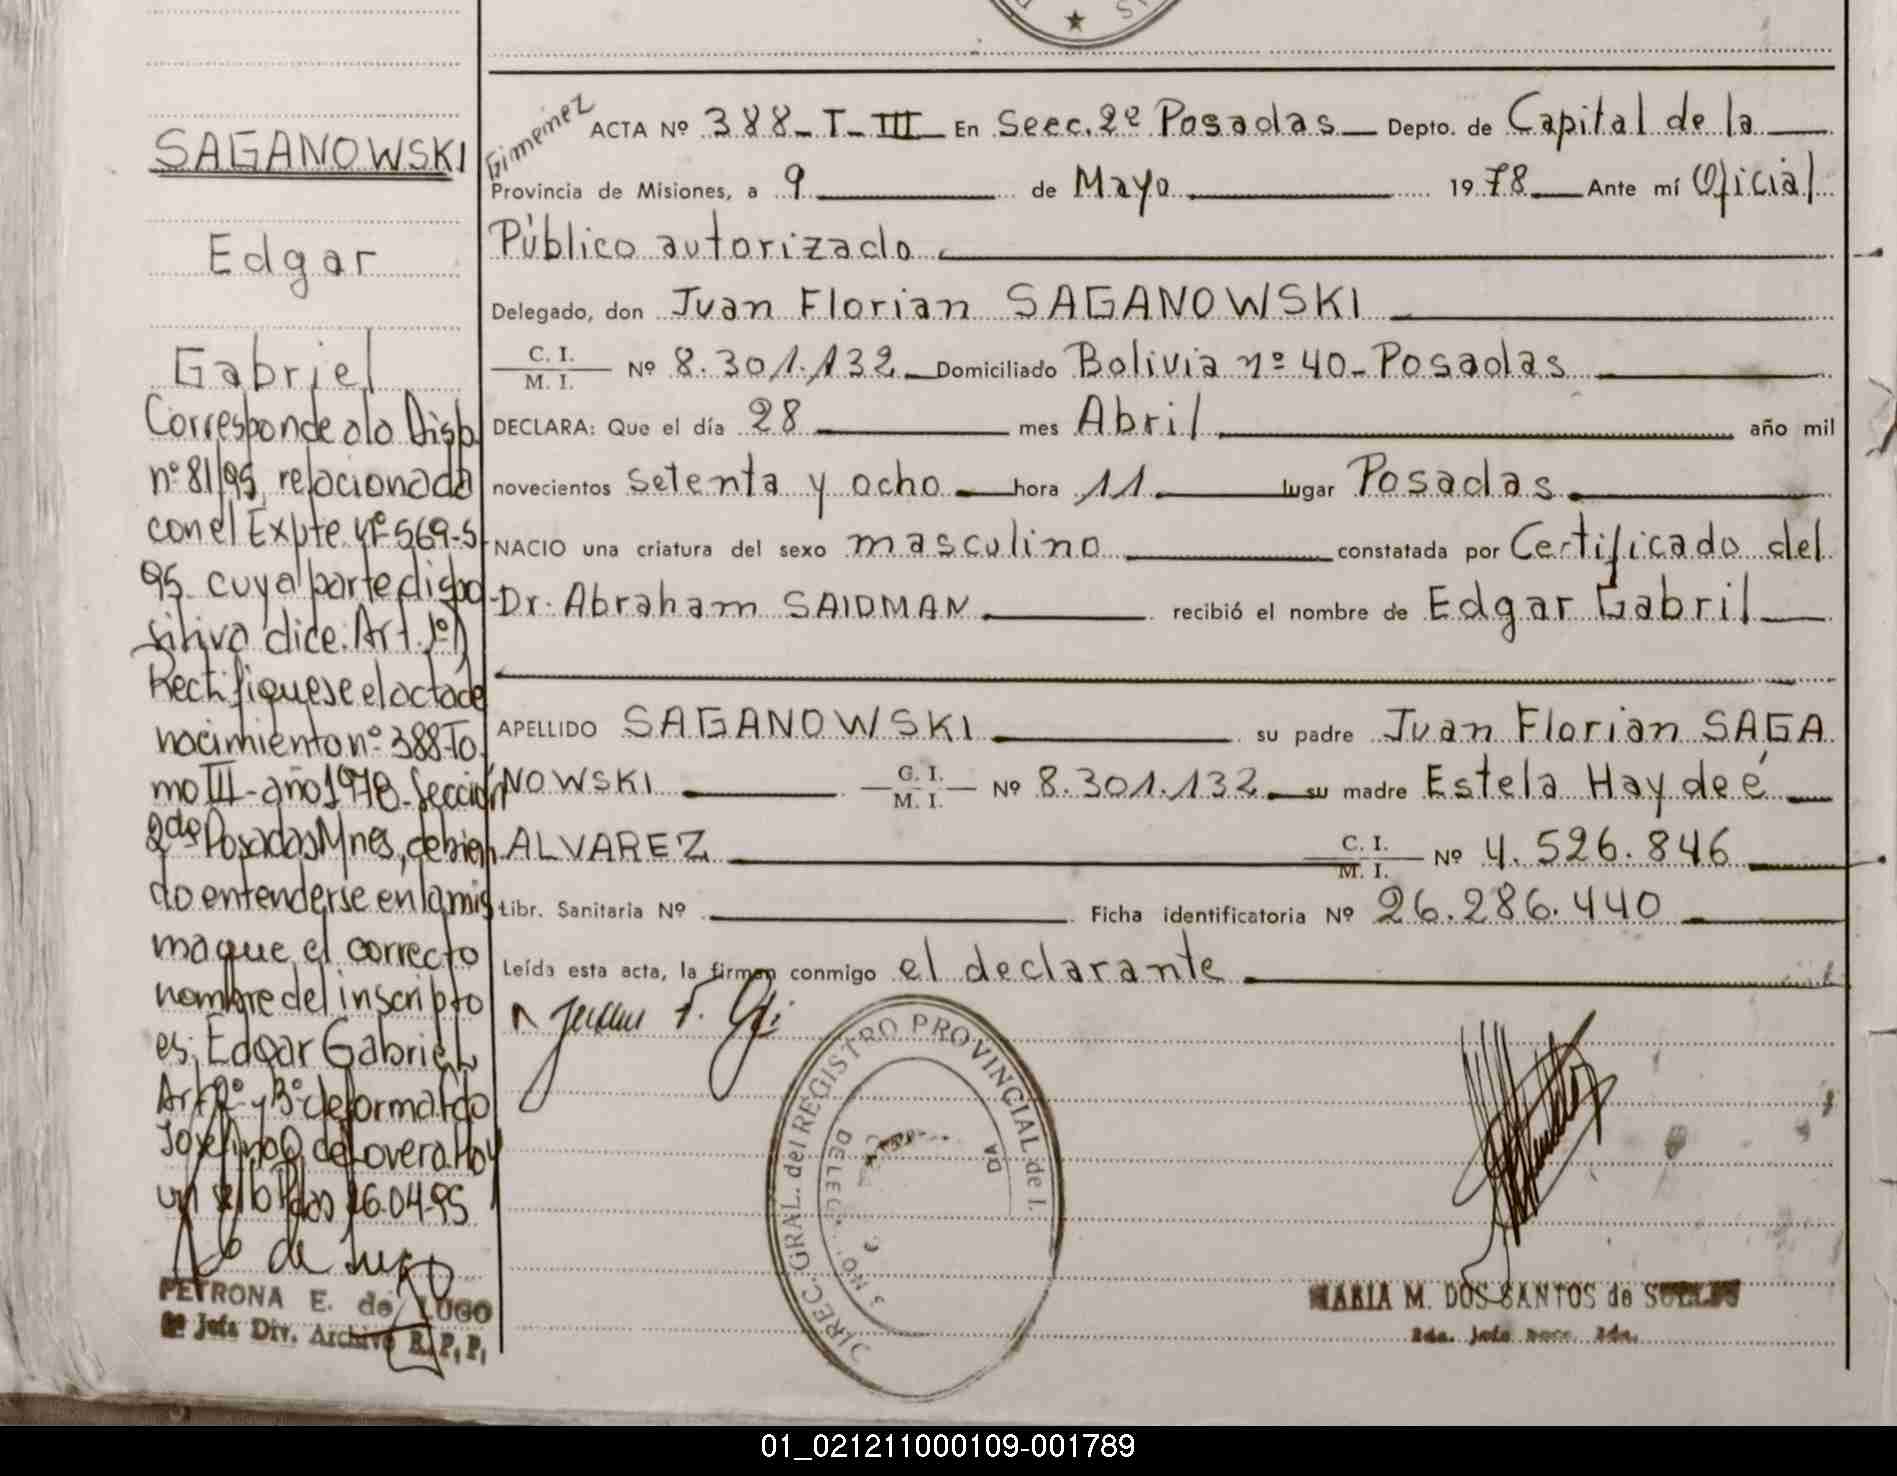 SAGANOWSKI
Edgar
Gabriel
Corresponde a la Disp.
nº 81/95, relacionada
con el Expte Nº 569-S-
95 cuya parte dispo-
sitiva dice: Art. 1º)
Rectifiquese el acta de
nacimiento nº 388-To
mo III-año 1978-Sección
2da Posadas Mnes, debien
do entenderse en la mis
ma que el correcto
nombre del inscripto
es; Edgar Gabriel
Art 2º y 3º de forma Fdo
de Lovera. Hoy
26.04.95
PETRONA E. de LUGO
2º Jefa Div. Archivo R. P. P.
Gimenez
ACTA Nº 388-T-III En Secc. 2º Posadas Depto. de Capital de la
Provincia de Misiones, a 9 de Mayo 1978 Ante mí Oficial
Público autorizado
Delegado, don Juan Florian SAGANOWSKI
C. I.
M. I. Nº 8.301.132 Domiciliado Bolivia nº 40-Posadas
DECLARA: Que el día 28 mes Abril año mil
novecientos setenta y ocho hora 11 lugar Posadas
NACIO una criatura del sexo masculino constatada por Certificado del
Dr. Abraham SAIDMAN recibió el nombre de Edgar Gabril
APELLIDO SAGANOWSKI su padre Juan Florian SAGA
NOWSKI C. I.
M. I. Nº 8.301.132 su madre Estela Haydeé
ALVAREZ C. I.
M. I. Nº 4.526.846
Libr. Sanitaria Nº Ficha identificatoria Nº 26.286.440
Leída esta acta, la firman conmigo el declarante
DIREC. GRAL. del REGISTRO PROVINCIAL de l.
MARIA M. DOS SANTOS de
01_021211000109-001789